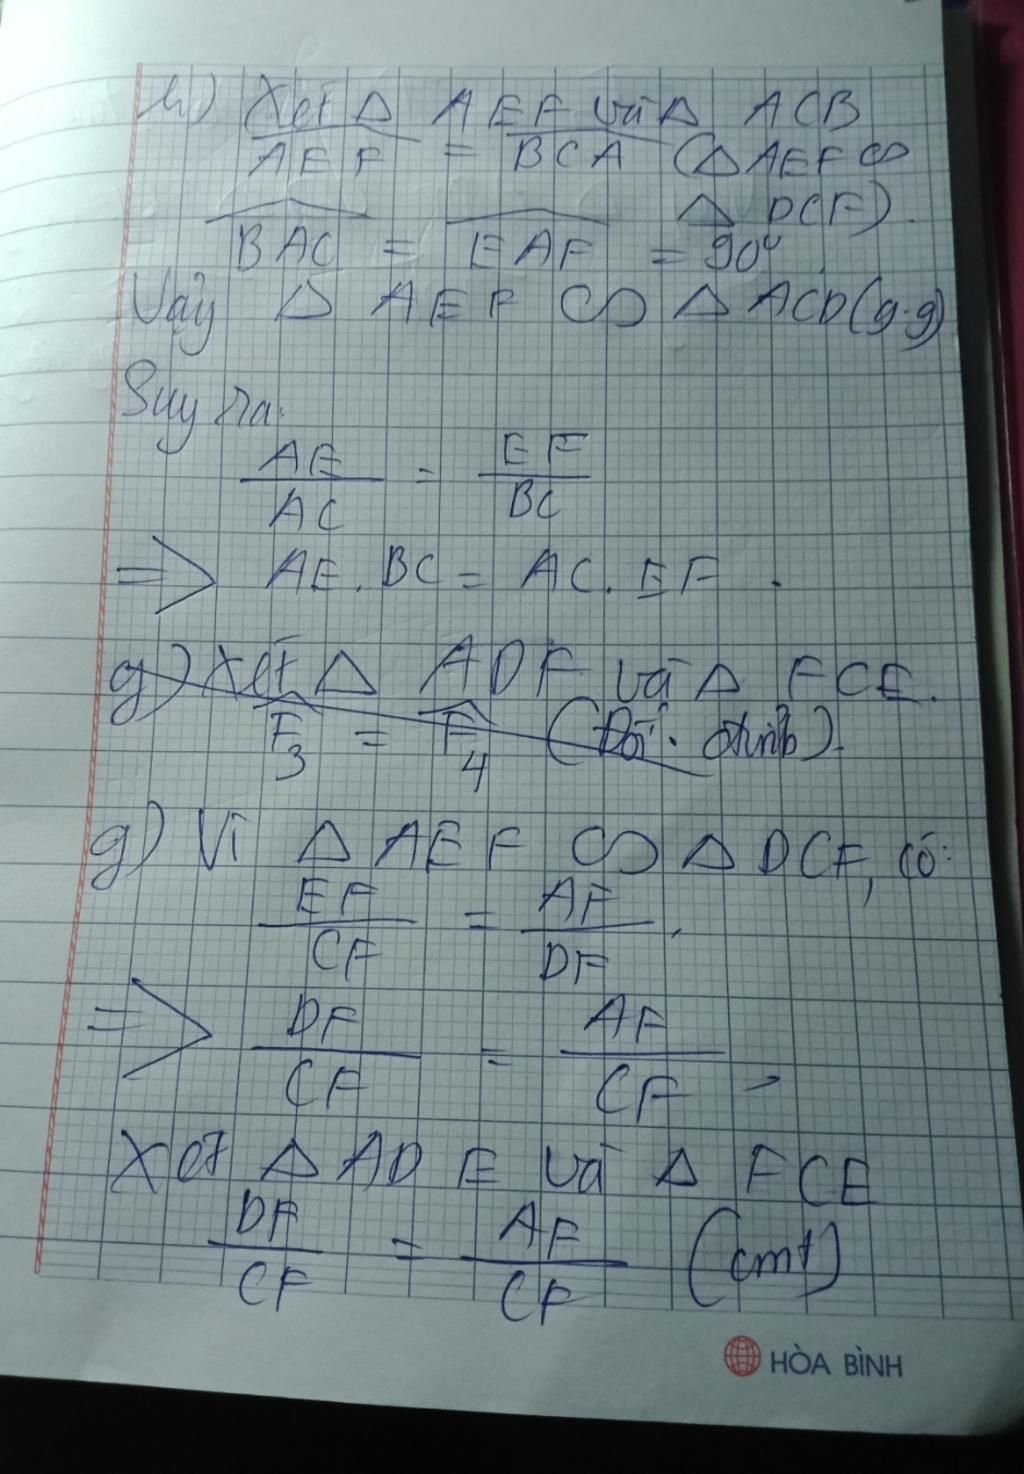 h) Xét Δ AEF và Δ ACB
AEF = BCA (Δ AEF ∽
Δ DCF).
BAC = EAF = 90°
Vậy Δ AEF ∽ Δ ACD (g.g)
Suy ra:
AE/AC = EF/BC
=> AE.BC = AC.EF.
g) Xét Δ ADF và Δ FCE.
F3 = F4 (Đối đỉnh).
g) Vì Δ AEF ∽ Δ DCF, có:
EF/CF = AF/DF.
=> DF/CF = AF/CF
Xét Δ ADE và Δ FCE
DF/CF = AF/CF (cmt)
HÒA BÌNH